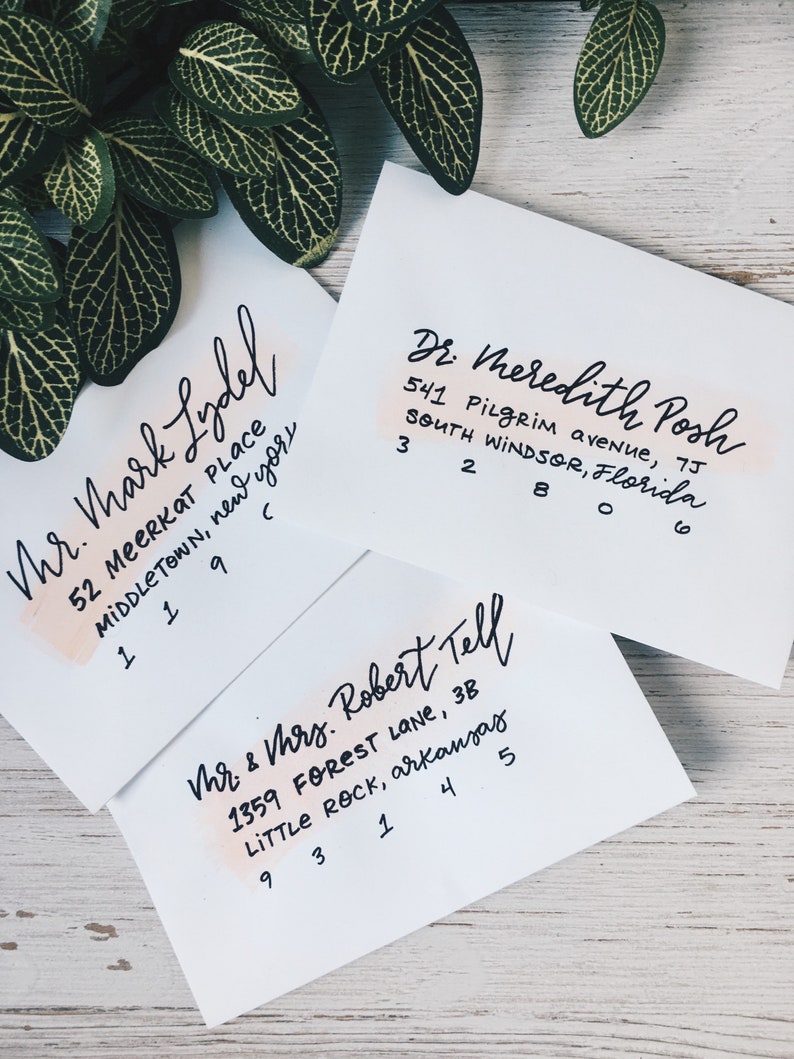 Mr. Mark Lydel
52 MEERKAT PLACE
MIDDLETOWN, new york
1 1 9
Dr. Meredith Posh
541 PILGRIM avenue, 7J
SOUTH WINDSOR, Florida
3 2 8 0 6
Mr. & Mrs. Robert Tell
1359 FOREST Lane, 3B
LITTLE ROCK, arkansas
9 3 1 4 5